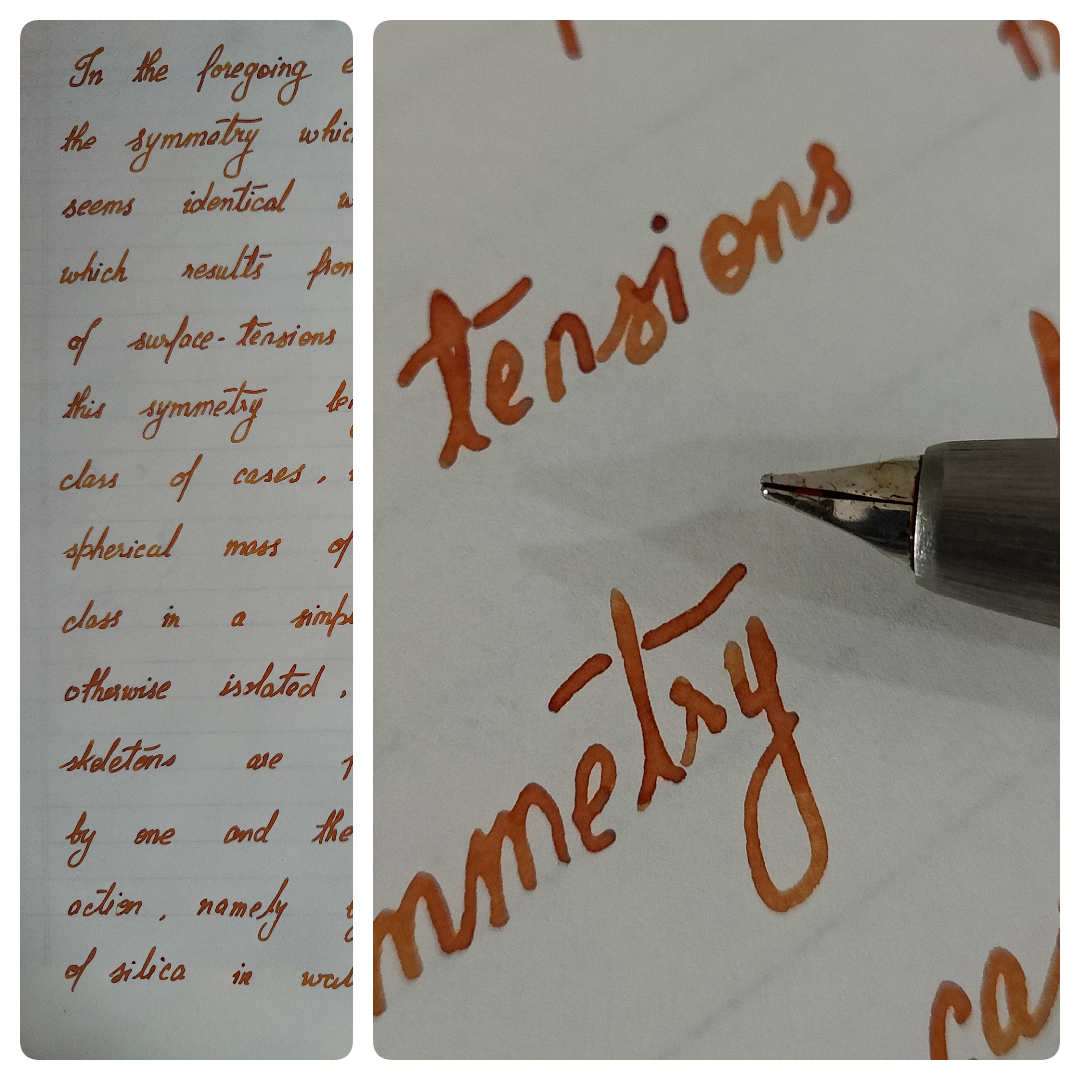 In the foregoing
the symmetry which
seems identical
which results from
of surface-tensions
this symmetry
class of cases,
spherical mass of
class in a
otherwise isolated,
skeletons are
by one and the
action, namely
of silica in
tensions
mmetry
ca